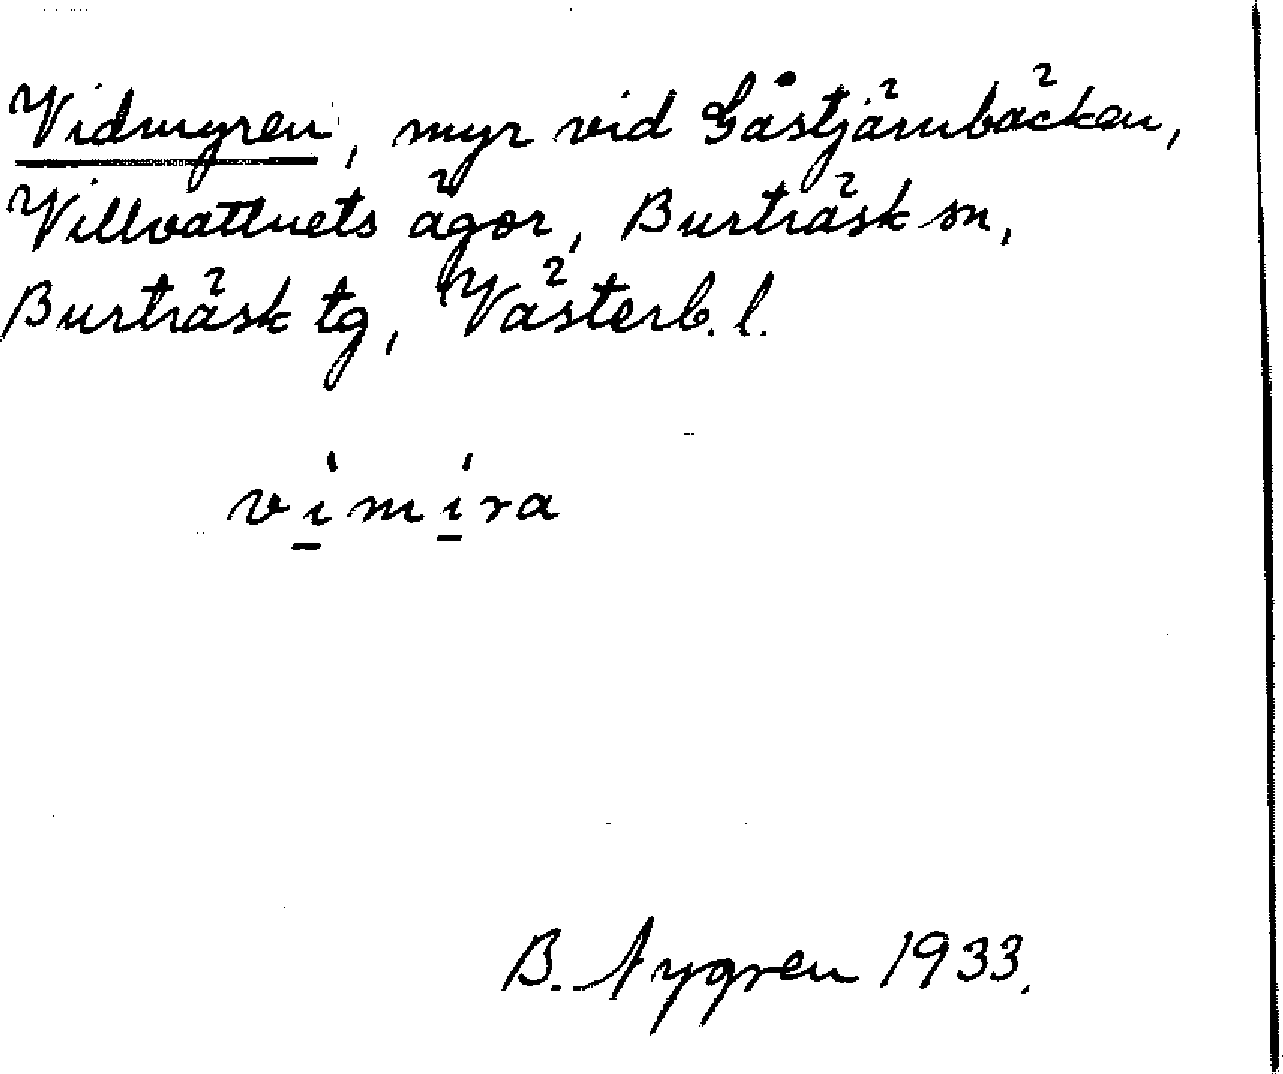 Vidmyren, myr vid Gåstjärnbäcken,
Villvattnets ägor, Burträsk sn,
Burträsk tg, Västerb. l.
vimira
B. Nygren 1933.